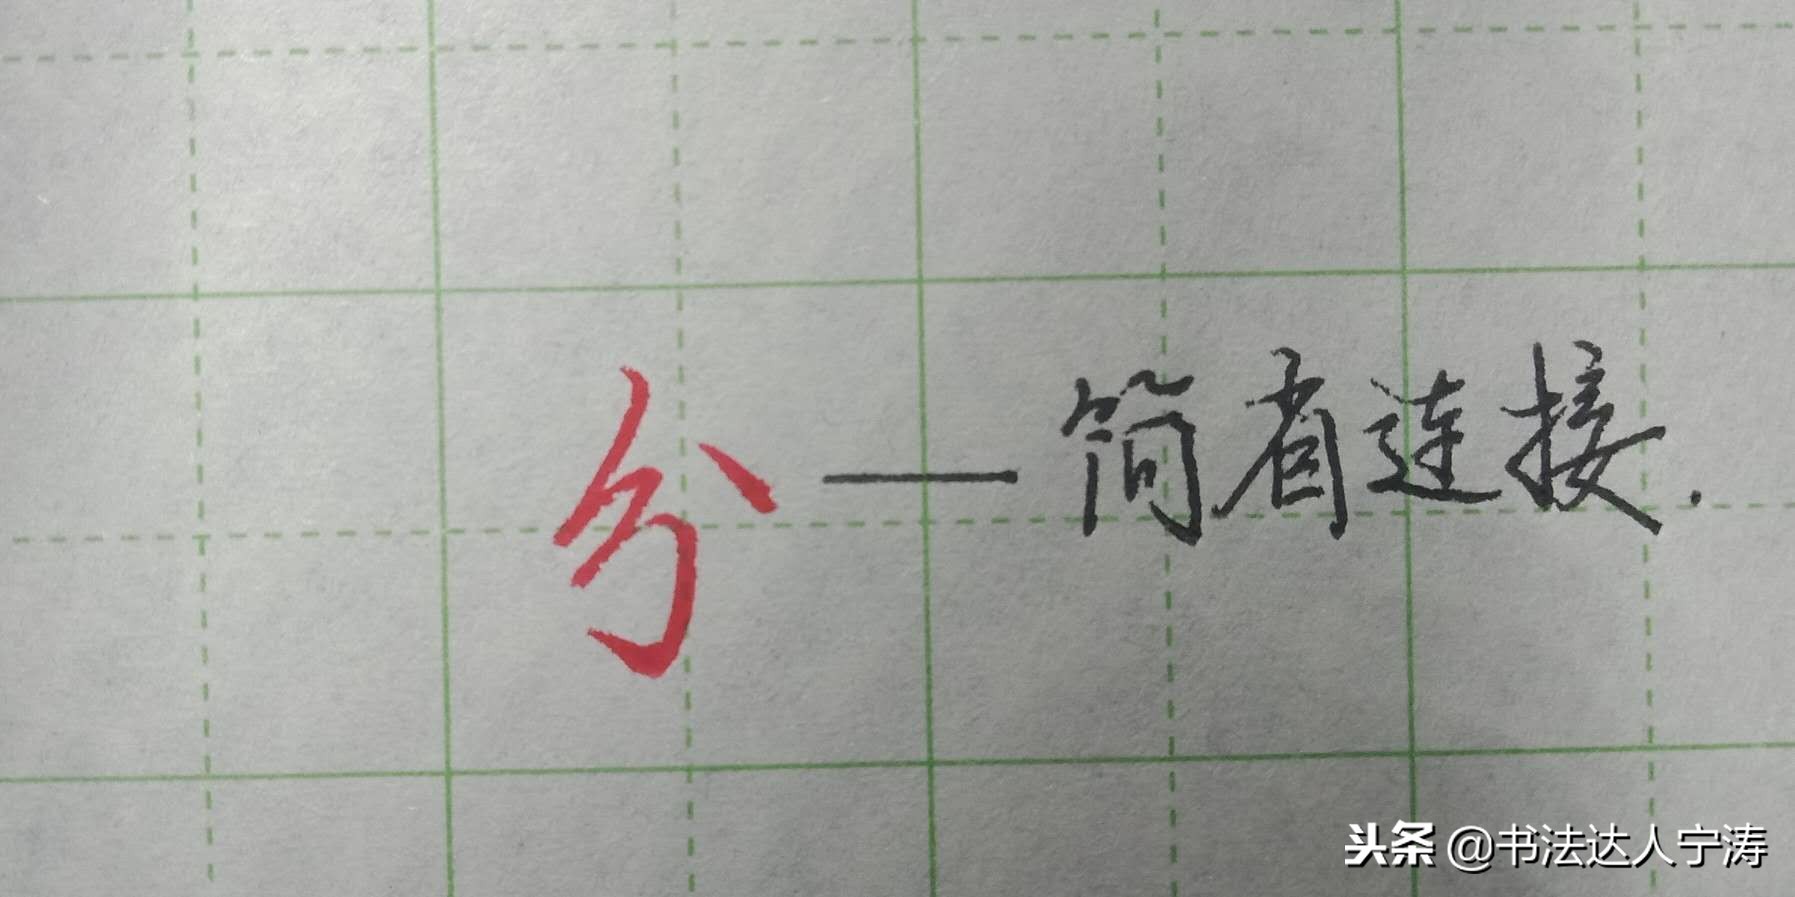 分——简省连接.
头条 @书法达人宁涛